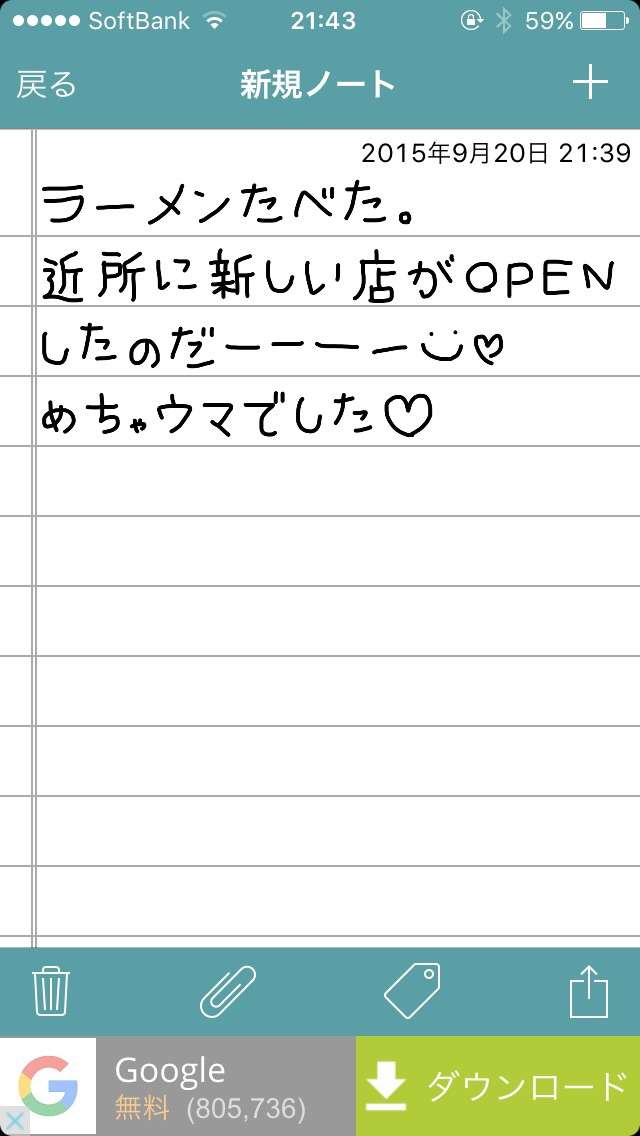 SoftBank 21:43 59%
戻る 新規ノート
2015年9月20日 21:39
ラーメンたべた。
近所に新しい店がOPEN
したのだーーーー
めちゃウマでした♡
Google
無料 (805,736)
ダウンロード